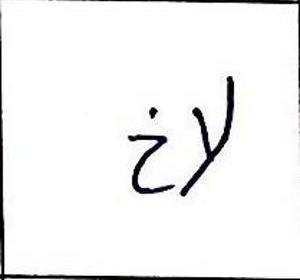 لاخ